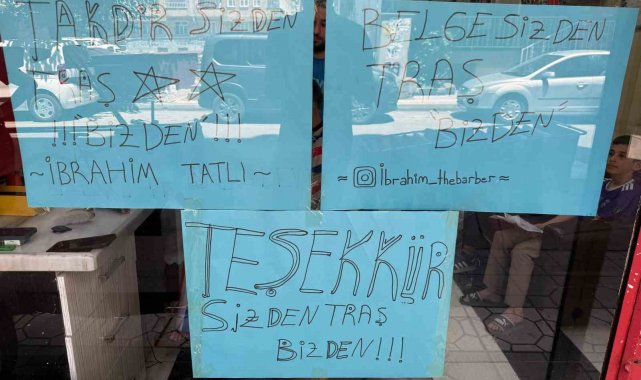 TAKDİR SİZDEN
TRAŞ
!!!"BİZDEN"!!!
~İBRAHİM TATLI~
BELGE SİZDEN
TRAŞ
"BİZDEN"
≈ İbrahim_thebarber ≈
TEŞEKKÜR
SİZDEN TRAŞ
BİZDEN!!!